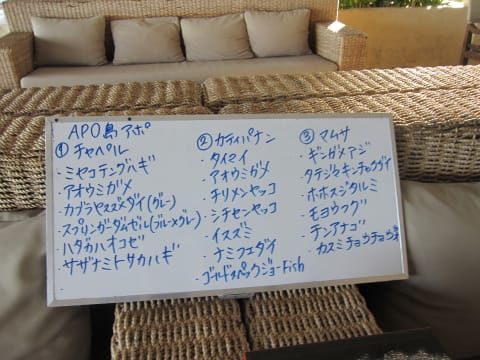 APO島アポ
① チャペル
・ミヤコテングハギ
・アオウミガメ
・カブラヤスズメダイ(グレー)
・スプリンガーダムゼル(ブルーメグレー)
・ハタタテハオコゼ
・サザナミトサカハギ
② カティパナン
・タイマイ
・アオウミガメ
・チリメンヤッコ
・シチセンヤッコ
・イスズミ
・ナミフエダイ
・ゴールドスペックジョーFish
③ マムサ
・ギンガメアジ
・タテジマキンチャクダイ
・ホホスジタルミ
・モヨウフグ
・テンアナゴ
・カスミチョウチョウ